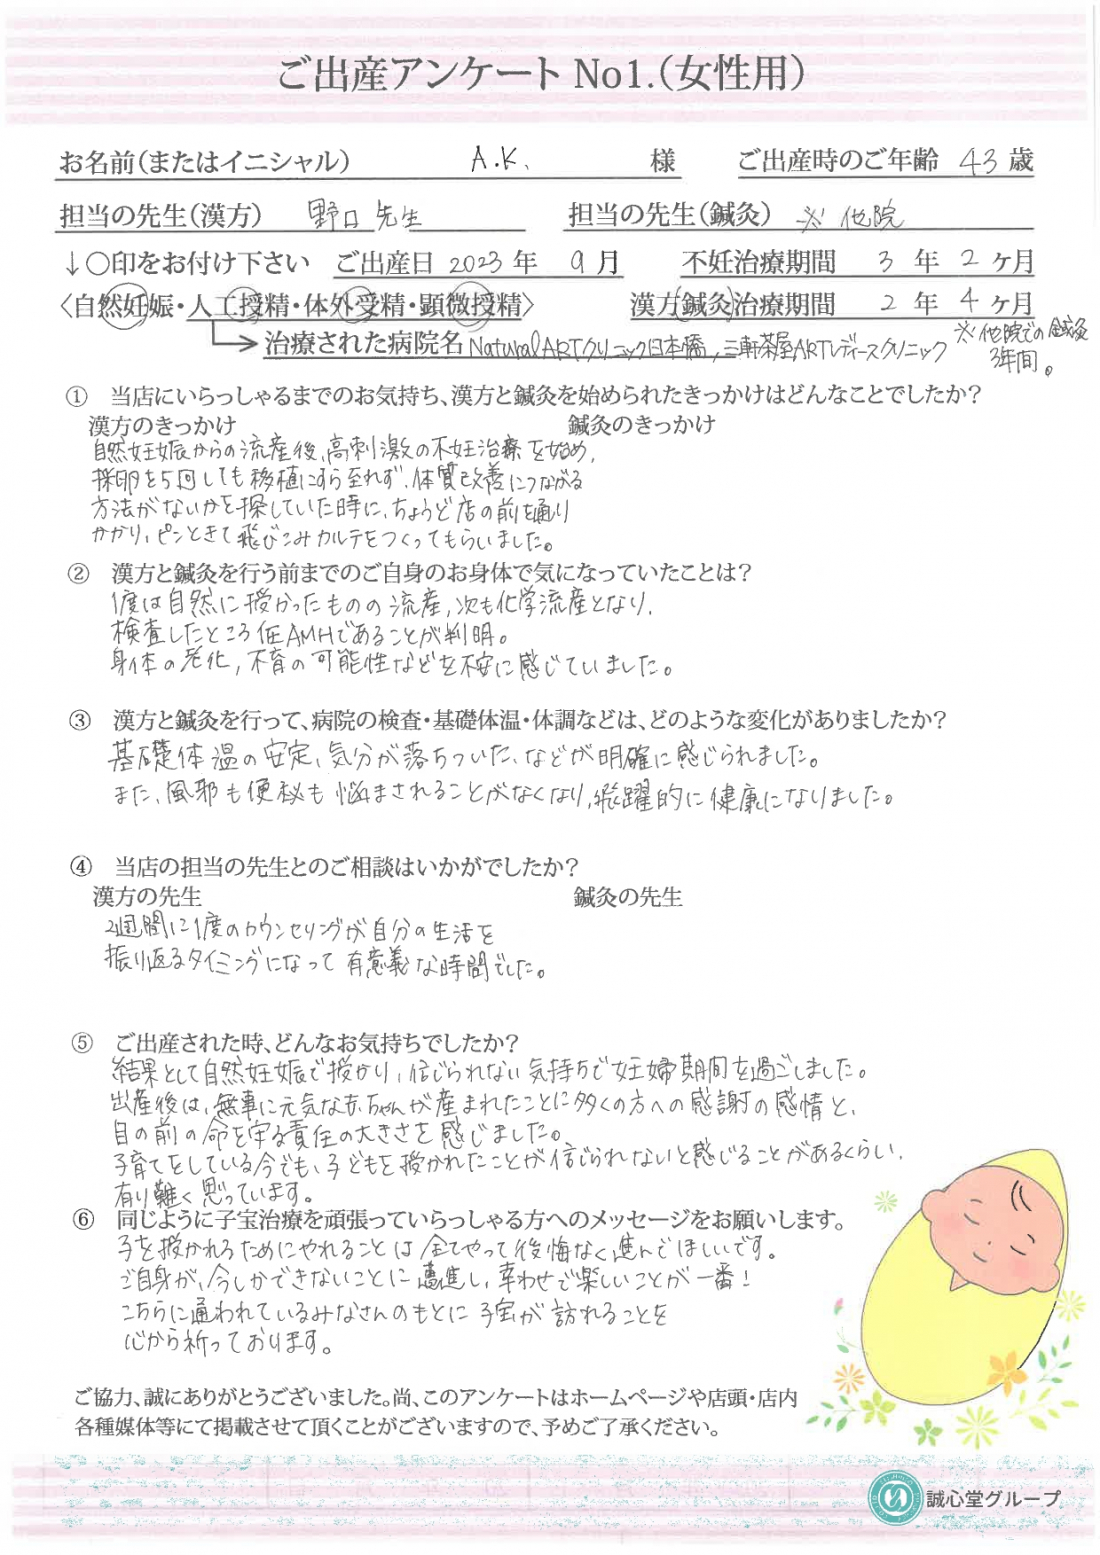 ご出産アンケート No1.(女性用)
お名前(またはイニシャル) A.K. 様 ご出産時のご年齢 43 歳
担当の先生(漢方) 野口先生 担当の先生(鍼灸) ※ 他院
↓○印をお付け下さい ご出産日 2023 年 9 月 不妊治療期間 3 年 2 ヶ月
〈自然妊娠・人工授精・体外受精・顕微授精〉 漢方(鍼灸)治療期間 2 年 4 ヶ月
治療された病院名 Natural ARTクリニック日本橋, 三軒茶屋ARTレディースクリニック
※他院での鍼灸
3年間。
① 当店にいらっしゃるまでのお気持ち、漢方と鍼灸を始められたきっかけはどんなことでしたか?
漢方のきっかけ 鍼灸のきっかけ
自然妊娠からの流産後、高刺激の不妊治療を始め、
採卵を5回しても移植にすら至れず、体質改善につながる
方法がないかを探していた時に、ちょうど店の前を通り
かかり、ピンときて飛びこみカルテをつくってもらいました。
② 漢方と鍼灸を行う前までのご自身のお身体で気になっていたことは?
1度は自然に授かったものの流産、次も化学流産となり、
検査したところ低AMHであることが判明。
身体の老化、不育の可能性などを不安に感じていました。
③ 漢方と鍼灸を行って、病院の検査・基礎体温・体調などは、どのような変化がありましたか?
基礎体温の安定、気分が落ちついた、などが明確に感じられました。
また、風邪も便秘も悩まされることがなくなり、飛躍的に健康になりました。
④ 当店の担当の先生とのご相談はいかがでしたか?
漢方の先生 鍼灸の先生
2週間に1度のカウンセリングが自分の生活を
振り返るタイミングになって有意義な時間でした。
⑤ ご出産された時、どんなお気持ちでしたか?
結果として自然妊娠で授かり、信じられない気持ちで妊婦期間を過ごしました。
出産後は、無事に元気な赤ちゃんが産まれたことに多くの方への感謝の感情と、
目の前の命を守る責任の大きさを感じました。
子育てをしている今でも、子どもを授かれたことが信じられないと感じることがあるくらい、
有り難く思っています。
⑥ 同じように子宝治療を頑張っていらっしゃる方へのメッセージをお願いします。
子を授かれるためにやれることは全てやって後悔なく進んでほしいです。
ご自身が、今しかできないことに邁進し、幸わせで楽しいことが一番!
こちらに通われているみなさんのもとに子宝が訪れることを
心から祈っております。
ご協力、誠にありがとうございました。尚、このアンケートはホームページや店頭・店内
各種媒体等にて掲載させて頂くことがございますので、予めご了承ください。
誠心堂グループ